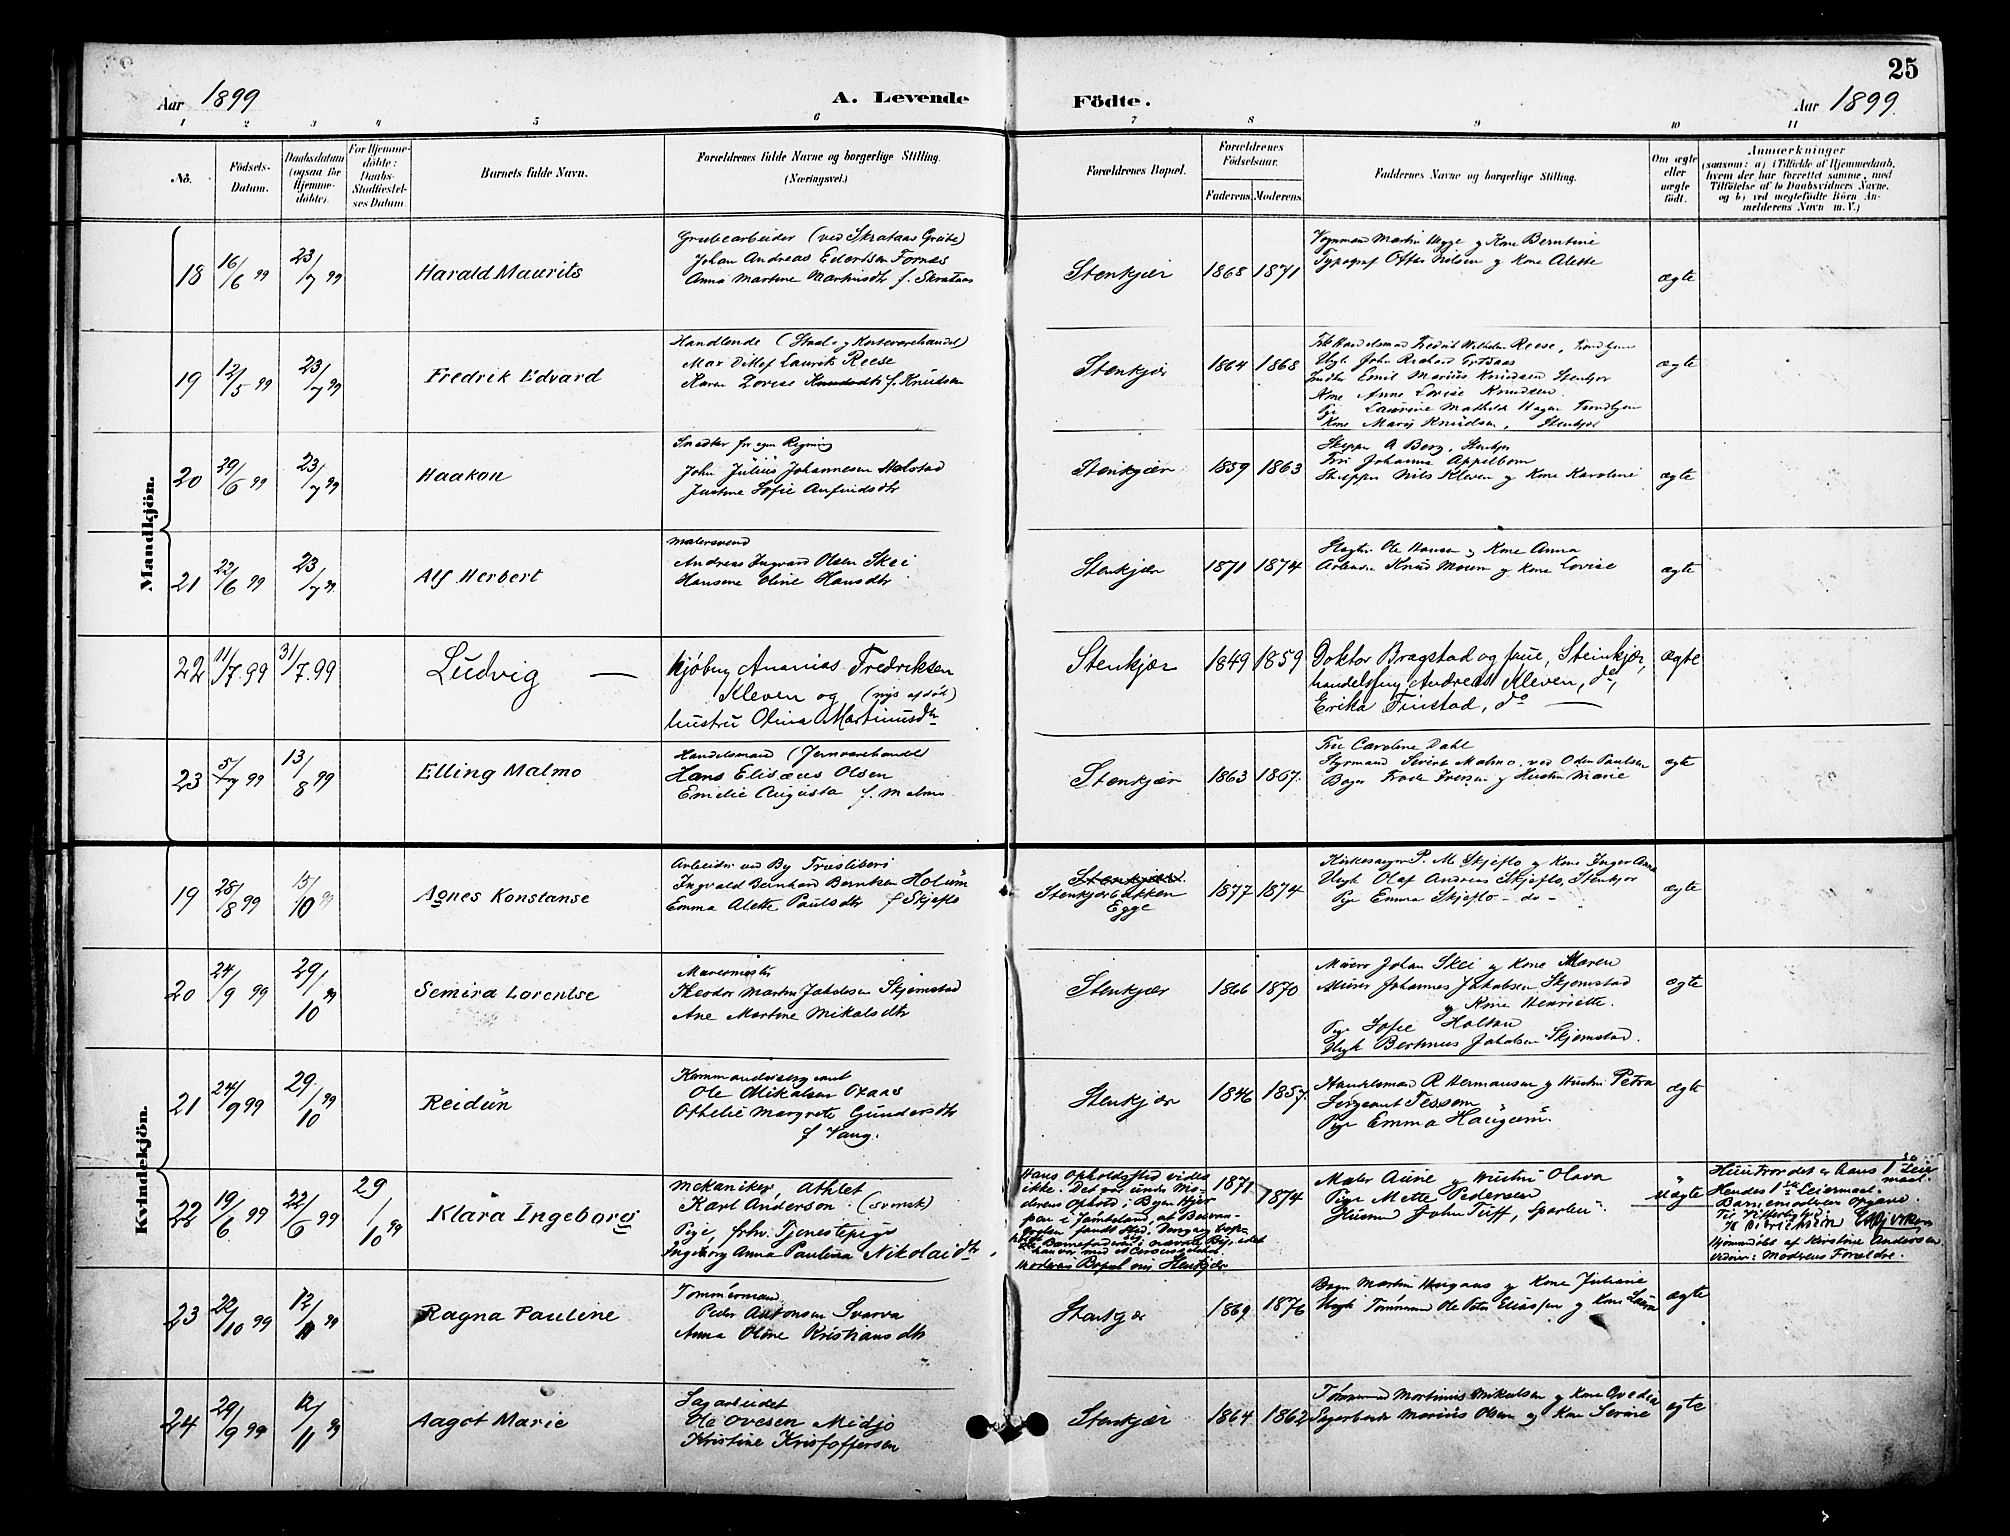 25
Aar 1899
A. Levende
Födte.
Aar 1899.
1 2 3 4 5 6 7 8 9 10 11
No.
Födsels-
Datum.
Daabsdatum
(ogsaa for
Hjemme-
döbte).
For Hjemme-
döbte:
Daabs-
Stadfæstel-
ses Datum.
Barnets fulde Navn.
Forældrenes fulde Navne og borgerlige Stilling.
(Næringsvei.)
Forældrenes Bopæl.
Forældrenes
Födselsaar.
Faderens. Moderens.
Faddernes Navne og borgerlige Stilling.
Om ægte
eller
uægte
födt.
Anmærkninger
(saasom: a) i Tilfælde af Hjemmedaab,
hvem der har forrettet samme, med
Tilföielse af to Daabsvidners Navne,
og b) ved uægtefödte Börn An-
melderens Navn m. V.)
Mandkjön.
18 16/6 99 23/7 99 Harald Maurits
Grubearbeider (ved Skrataas Grube)
Johan Andreas Edertsen Fornæs
Anna Martine Martinsdtr f. Skrataas
Stenkjær 1868 1871
Martin Hegge og Kone Berntine
Typograf Nilsen og Kone Alette
ægte
19 12/5 99 23/7 99 Fredrik Edvard
Handlende (Staal- og Kortevarehandel)
Max Ditlef Laurits Reese
Karen Lovise f. Knudsen
Stenkjær 1864 1868
Fredrik Wilhelm Reese,
Emil Marius Knudsen Stenkjær
Kone Anne Lovise Knudsen.
Pige Laurine Mathilde Hagen
Kone Marij Knudsen, Stenkjær
ægte
20 29/6 99 23/7 99 Haakon
Snedker for egen Regning
John Julius Johannesen Holstad
Justine Sofie Anfindsdtr
Stenkjær 1859 1863
Skipper A Berg, Stenkjær
Johanna Appelbom
Skipper Nils Kleven og Kone Karoline
ægte
21 22/6 99 23/7 99 Alf Herbert
Malersvend
Andreas Ingvard Olsen Skei
Hansine Oline Hansdtr
Stenkjær 1871 1874
Ole Hansen og Kone Anna
Arbeider Knud Moum og Kone Lovise
ægte
22 11/7.99 31/7.99 Ludvig —
Kjøbm. Ananias Fredriksen
Kleven og (nys afdøk)
hustru Olina Martinusdtr
Stenkjær 1849 1859
Doktor Bragstad og frue, Steinkjær,
handelsbetj. Andreas Kleven, do,
Erika Finstad, do —
ægte
23 5/7 99 13/8 99 Elling Malmo
Handelsmand (Jernvarehandel)
Hans Elisæus Olsen
Emelie Augusta f. Malmo
Stenkjær 1863 1867.
Fru Caroline Dahl
Styrmand Sivert Malmo, ved Oden Paulsen
Iversen og Hustru Marie
ægte
Kvindekjön.
19 28/8 99 15/10 99 Agnes Konstanse
Arbeider ved By Træsliberi
Ingvald Bernhard Berntsen Holum
Emma Alette Paulsdtr f Skjeflo
Stenkjær
Stenkjærbakken
Egge
1877 1874
Kirkesanger P. M. Skjeflo og Kone Inger Anna
Ungk Olaf Andreas Skjeflo, Stenkjær
Pige Emma Skjeflo - do -
ægte
20 24/9 99 29/10 99 Semira Lorentse
Murermester
Theodor Martin Jakobsen Skjemstad
Ane Martine Mikalsdtr
Stenkjær 1866 1870
Murer Johan Skei og Kone Maren
Murer Johannes Jakobsen Skjemstad
og Kone Henriette.
Pige Sofie Holtan
Ungk Bertinus Jakobsen Skjemstad.
ægte
21 24/9 99 29/10 99 Reidun
Kommandersergeant
Ole Mikalsen Oxaas
Othelie Margrete Gundersdtr
f Vang.
Stenkjær 1846 1857.
Handelsmand R Hermansen og Hustru Petra
Sergeant Tessem
Pige Emma Haugum.
ægte
22 19/6 99 22/6 99 29/10 99 Klara Ingeborg
Mekaniker, Athlet
Karl Anderson (svensk)
Pige, frhv. Tjenestepige
Ingeborg Anna Paulina Nikolaidtr.
Hans Opholdssted vides
ikke. Det var under Mo-
derens Ophold i Byen
i Jämtland, at Besvan-
grelsen fandt Sted.
Moderens Bopæl nu Stenkjær.
1871 1874
Maler Aune og Hustru Olava
Pige Mette Pedersen
Husmd John Tuff, Sparbu.
uægte
Huntror det er hans 1ste Leier-
maal.
Hendes 1ste Leiermaal.
Barnemoderen opgave.
Til Vitterlighed:
Hjemmedøbt af Kristine Andersen
Vidner: Moderens Forældre.
23 22/10 99 12/11 99 Ragna Pauline
Tømmermand
Peder Antonsen Svarva
Anna Oline Kristiansdtr
Stenkjær 1869 1876
Martin Haugaas og Kone Juliane
Tømmermd Ole Peter Eliassen og Kone Laura
ægte
24 29/9 99 12/11 99 Aagot Marie
Sagarbeider
Ole Ovesen Midjo
Kristine Kristoffersen
Stenkjær 1864 1862
Tømmermd Martinus Mikalsen og Kone
Sagarbeider Marius Olsen og Kone Serine
ægte